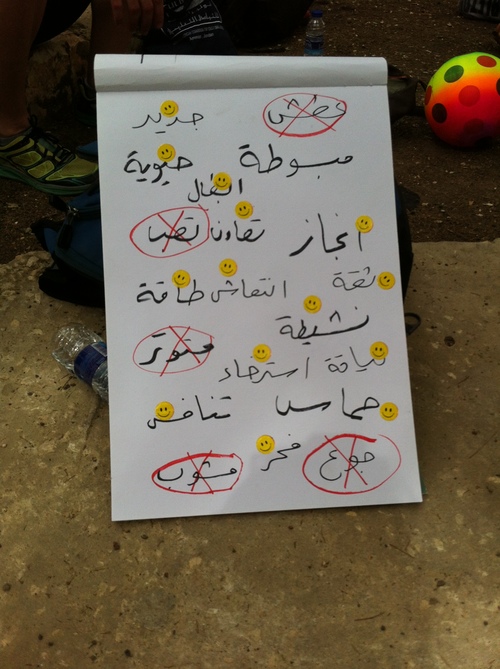 عطش جديد
مبسوطة حيوية
انجاز تعاون تعب
ثقة انتعاش طاقة
نشيطة
متوتر
لياقة استرخاء
حماس تنافس
جوع فخر مشوب